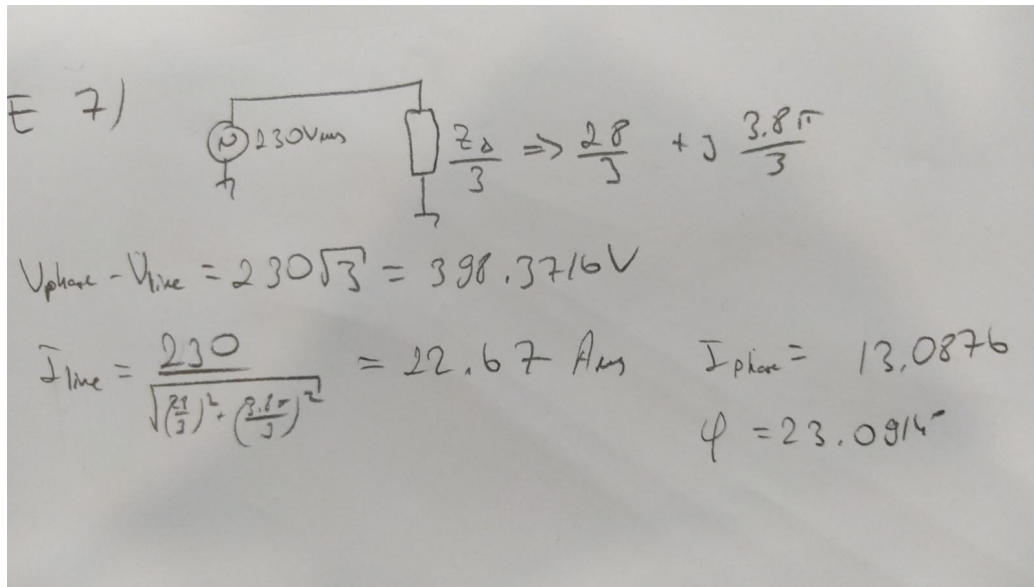 E 7)
230Vrms
Z∆/3 => 28/3 + j 3.8π/3
Vphase - Vline = 230√3 = 398.3716V
Iline = 230/√((28/3)² + (3.8π/3)²) = 22.67 Arms
Iphase = 13.0876
φ = 23.0914°